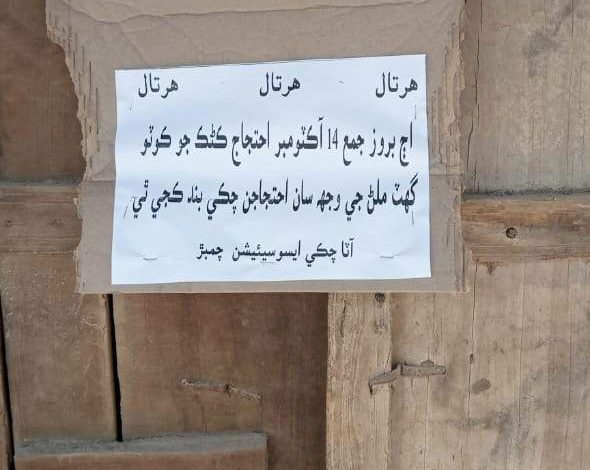 هرتال هرتال هرتال
اڄ بروز جمع 14 آڪٽومبر احتجاج ڪڻڪ جو ڪوٽو
گهٽ ملڻ جي وجهہ سان احتجاجن چڪي بند ڪجي ٿي
آٽا چڪي ايسوسيئيشن چمبڙ